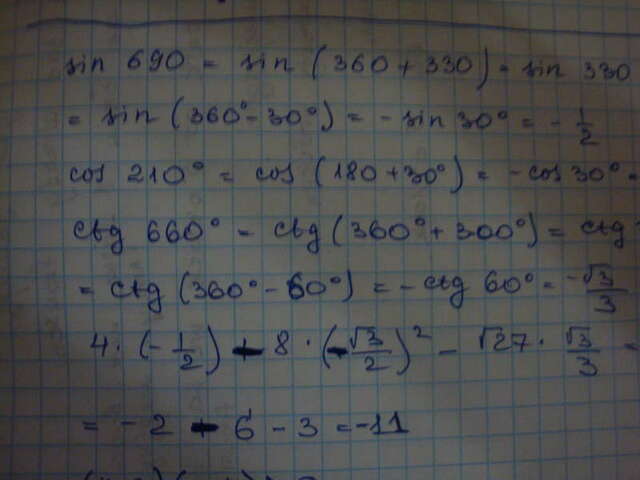 sin 690 = sin (360 + 330) = sin 330
= sin (360° - 30°) = - sin 30° = - 1/2
cos 210° = cos (180 + 30°) = - cos 30° =
ctg 660° = ctg (360° + 300°) = ctg
= ctg (360° - 60°) = - ctg 60° = -√3/3
4 · (- 1/2) - 8 · (-√3/2)² - √27 · √3/3 =
= - 2 - 6 - 3 = -11